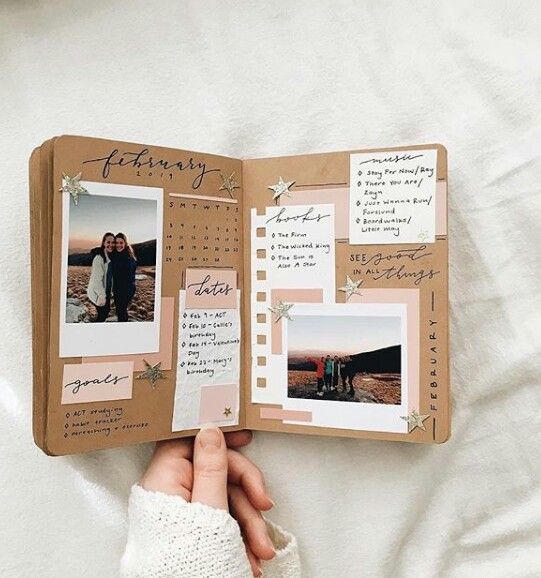 february
2019
S M T W T F S
dates
◊ Feb 9 - ACT
◊ Feb 10 - Callie's
birthday
◊ Feb 14 - Valentines
Day
◊ Feb 22 - Mary's
birthday
goals
◊ ACT studying
◊ habit tracker
◊ stretching + exercise
books
◊ The Firm
◊ The Wicked King
◊ The Sun is
Also A Star
music
◊ Stay For Now/Ray
◊ There You Are/
Zayn
◊ Just Wanna Run/
Forslund
◊ Boardwalks/
Little May
SEE good
IN ALL things
FEBRUARY